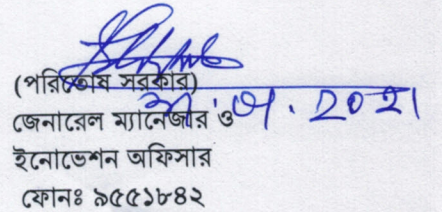 (পরিতোষ সরকার)
জেনারেল ম্যানেজার ও
ইনোভেশন অফিসার
ফোনঃ ৯৫৫১৮৪২